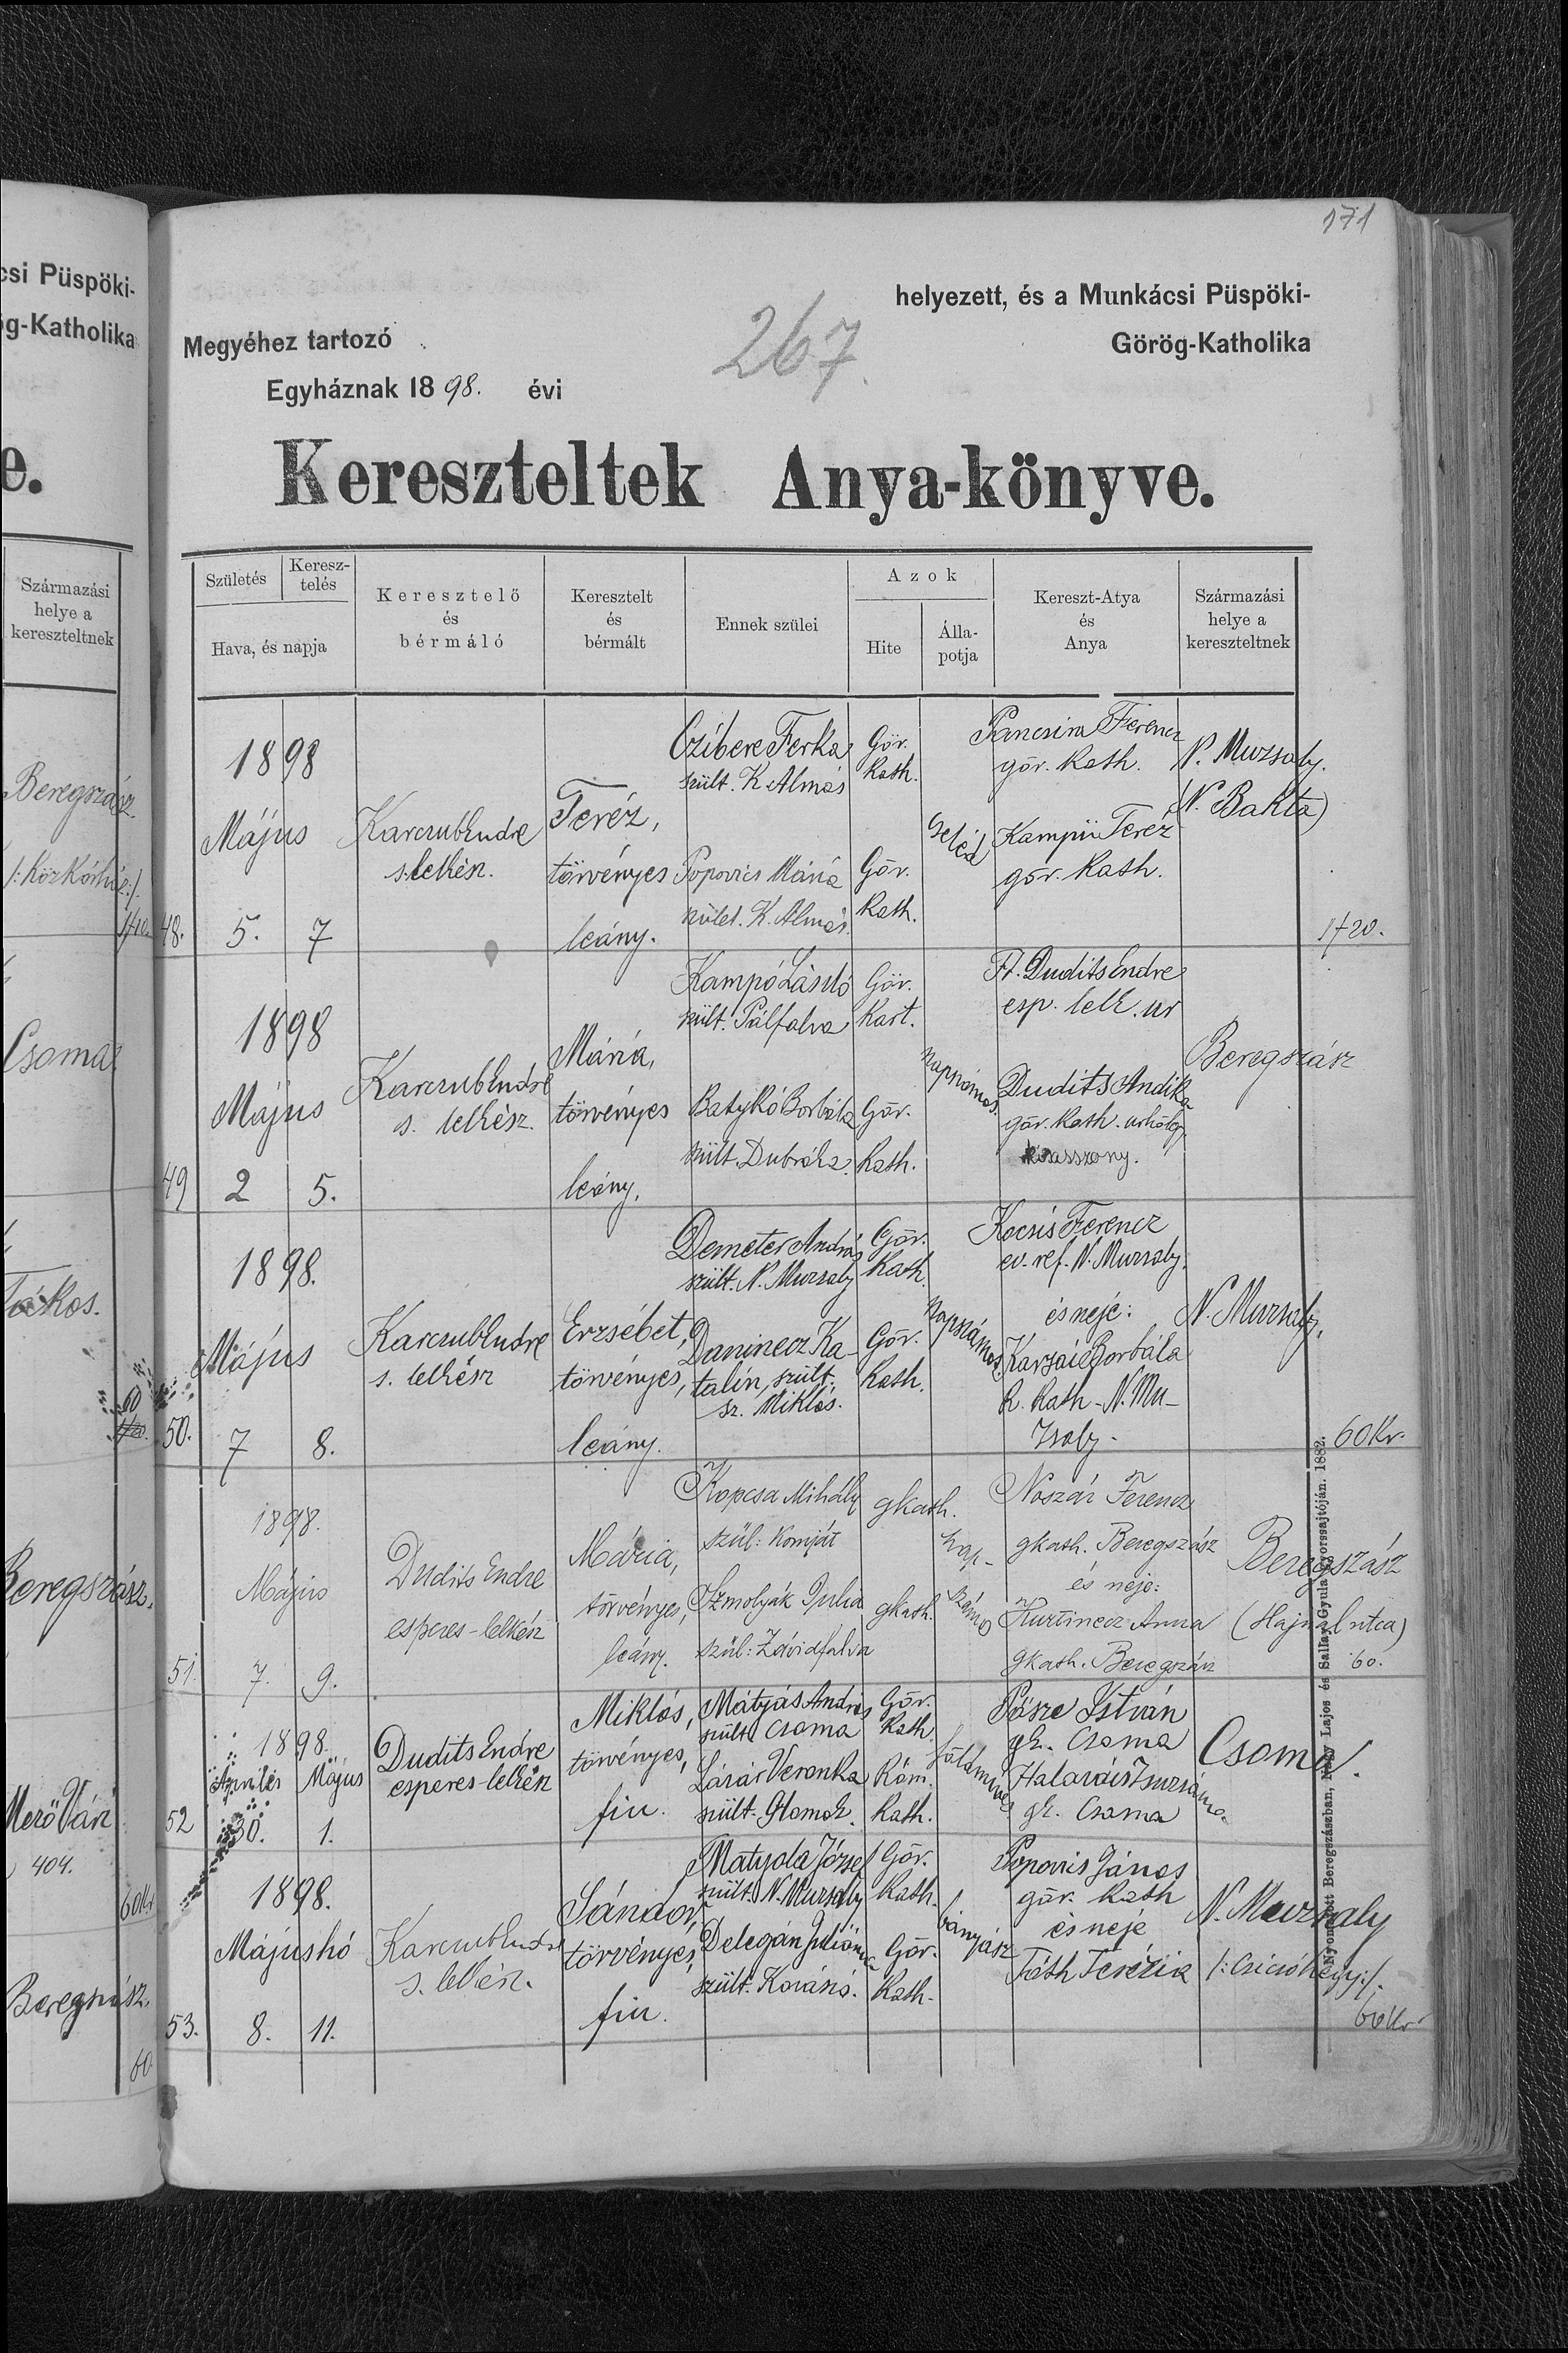 171
csi Püspöki-
ög-Katholika
helyezett, és a Munkácsi Püspöki-
Megyéhez tartozó
Görög-Katholika
267.
Egyháznak 1898. évi
e.
Kereszteltek Anya-könyve.
Származási
helye a
kereszteltnek
Beregszász
Csoma
Beregszász.
404.
60kr
Beregszász.
60
Születés
Keresz-
telés
Hava, és napja
Keresztelő
és
bérmáló
Keresztelt
és
bérmált
Ennek szülei
Azok
Hite
Álla-
potja
Kereszt-Atya
és
Anya
Származási
helye a
kereszteltnek
48.
1898
Május
5. 7
Karczub Endre
s. lelkész.
Teréz,
törvényes
leány.
Czibere Ferka
szült. K Almás
Popovics Mária
szület. K. Almás.
Gör.
Kath.
Gör.
Kath.
cseléd
Pancsira Ferencz
gör. Kath.
Teréz
gör. Kath.
N. Muzsaly.
(N. Bakta)
1f20.
49
1898
Május
2 5.
Karczub Endre
s. lelkész.
Mária,
törvényes
leány.
Kampó László
szült. Pálfalva
Batykó Borbála
szült. Dubróka.
Gör.
Kart.
Gör.
Kath.
napszámos.
Ft. Dudits Endre
esp. lelk. ur
Dudits Andika
gör. Kath. urhölgy
kisasszony.
Beregszász
50.
1898.
Május
7 8.
Karczub Endre
s. lelkész
Erzsébet,
törvényes,
leány.
Demeter András
szült. N. Muzsaly
Daninecz Ka-
talin, szült.
sz. Miklós.
Gör.
Kath.
Gör.
Kath.
napszámos
Kocsis Ferencz
ev. ref. N. Muzsaly.
és neje:
Borbála
R. Kath - N. Mu-
zsaly -
N. Muzsaly.
60Kr.
51.
1898.
Május
7. 9.
Dudits Endre
esperes-lelkész
Mária,
törvényes,
leány.
Kopcsa Mihály
szül: Komját
Szmolyák Julia
szül: Závidfalva
gkath.
gkath.
nap-
számos
Noszár Ferencz
gkath. Beregszász
és neje:
Kurtinecz Anna
gkath. Beregszász
Beregszász
(Hajnal utca)
60.
52
1898.
Április Május
30. 1.
Dudits Endre
esperes-lelkész
Miklós,
törvényes,
fiu.
Mátyás András
szült. Csoma
Lázár Veronka
szült.
Gör.
Kath.
Róm.
Kath.
földmives
Pásze István
gk. Csoma
Zsuzsánna
gk. Csoma
Csoma.
53.
1898.
Májushó
8. 11.
Karczub Endre
s. lelkész.
Sándor,
törvényes,
fiu.
Matyola József
szült. N. Muzsaly
Delegán Juliánna
szült. Kovászó.
Gör.
Kath.
Gör.
Kath.
bányász
Popovics János
gör. Kath
és neje
Tóth Terézia
N. Muzsaly
/:Csicsóhegy:/.
60Kr
Nyomatott Beregszászban, Nagy Lajos és Sallay Gyula gyorssajtóján. 1882.